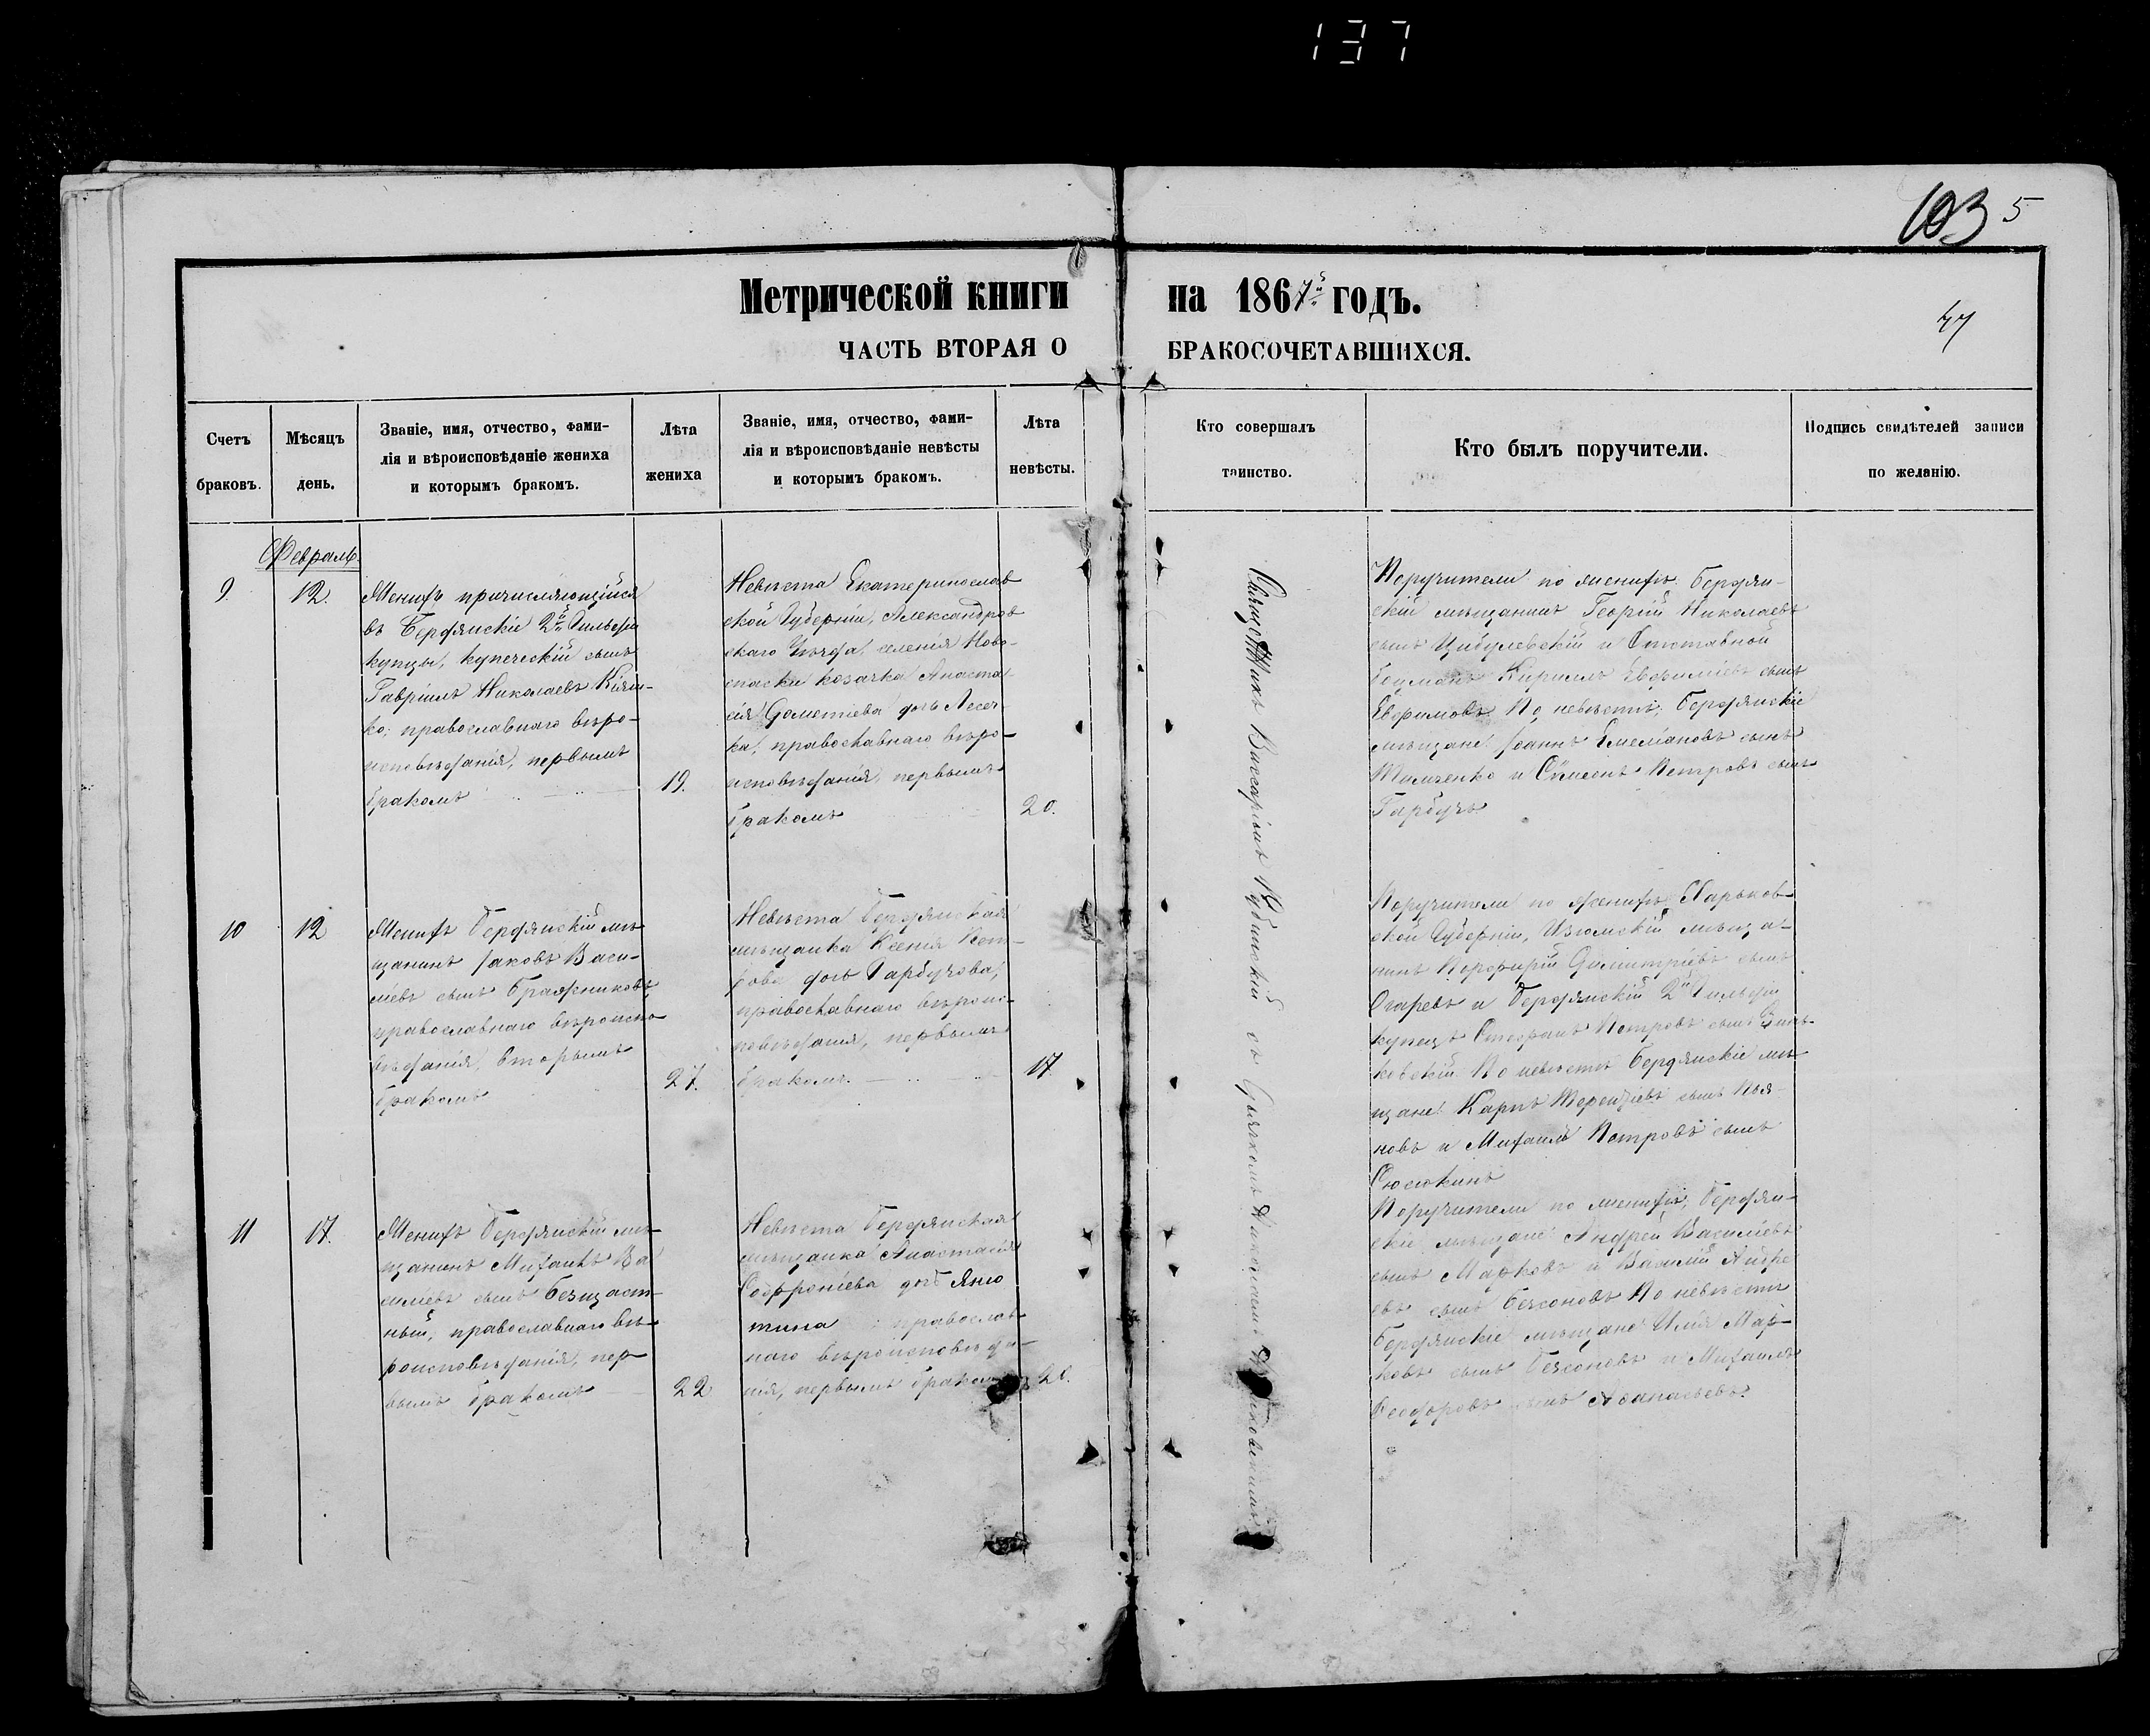 137
103 5
Метрической книги на 1867й годъ.
47
ЧАСТЬ ВТОРАЯ О БРАКОСОЧЕТАВШИХСЯ.
Счетъ браковъ.
Мѣсяцъ день.
Званіе, имя, отчество, фами-
лія и вѣроисповѣданіе жениха
и которымъ бракомъ.
Лѣта жениха
Званіе, имя, отчество, фами-
лія и вѣроисповѣданіе невѣсты
и которымъ бракомъ.
Лѣта невѣсты.
Кто совершалъ таинство.
Кто былъ поручители.
Подпись свидѣтелей записи
по желанію.
Февраль
9.
12.
Женихъ причисляющійся
въ Бердянскіе 2й Гильдіи
купцы, купеческій сынъ
Гавріилъ Николаевъ
ко; православнаго вѣро-
исповѣданія, первымъ
бракомъ
19.
Невѣста Екатеринослав
ской Губерніи, Александров
скаго Уѣзда, селенія Ново-
спаски козачка Анаста-
сія Дометіева дочь Лесеч-
ка, православнаго вѣро-
исповѣданія, первымъ
бракомъ
20.
Священникъ Виссаріонъ съ Дьячкомъ Николаемъ
Поручители по женихѣ: Бердян-
скій мѣщанинъ Георгій Николаевъ
сынъ Цибулевскій и Отставной
Боцманъ Кириллъ Евфиміевъ сынъ
Евфимовъ. По невѣстѣ; Бердянскіе
мѣщане: Іоаннъ Емеліановъ сынъ
Тимченко и Симеонъ Петровъ сынъ
Гарбузъ
10
12
Женихъ Бердянскій мѣ-
щанинъ Іаковъ Васи-
ліевъ сынъ Бражниковъ,
православнаго вѣроиспо-
вѣданія, вторымъ
бракомъ
27.
Невѣста Бердянская
мѣщанка Ксенія Пет-
рова дочь Гарбузова,
православнаго вѣроис-
повѣданія, первымъ
бракомъ.
17.
Поручители по женихѣ Харьков-
ской Губерніи, Изюмскій мѣща-
нинъ Порфирій Димитріевъ сынъ
Огаревъ и Бердянскій 2й Гильдіи
купецъ Стефанъ Петровъ сынъ Зинь-
ковскій. По невѣстѣ Бердянскіе мѣ-
щане: Карпъ Терентіевъ сынъ Пья-
новъ и Михаилъ Петровъ сынъ
Сюсюкинъ
11
17.
Женихъ Бердянскій мѣ-
щанинъ Михаилъ Ва
силіевъ сынъ Безщаст-
ный, православнаго вѣ-
роисповѣданія, пер
вымъ бракомъ
22
Невѣста Бердянская
мѣщанка Анастасія
Софроніева дочь Яню
тина православ-
наго вѣроисповѣда-
нія, первымъ бракомъ
Поручители по женихѣ; Бердян-
скіе мѣщане Андрей Василіевъ
сынъ Марковъ и Василій Андре
евъ сынъ Безсоновъ По невѣстѣ
Бердянскіе мѣщане Илія Мар-
ковъ сынъ Безсоновъ и Михаилъ
Феодоровъ сынъ Афанасьевъ.